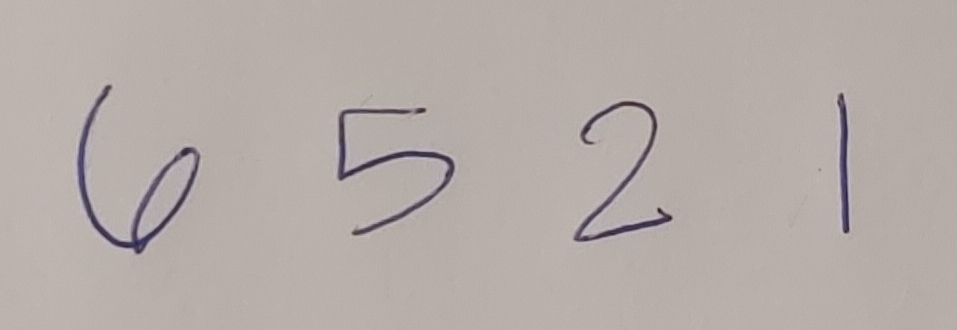 6 5 2 1